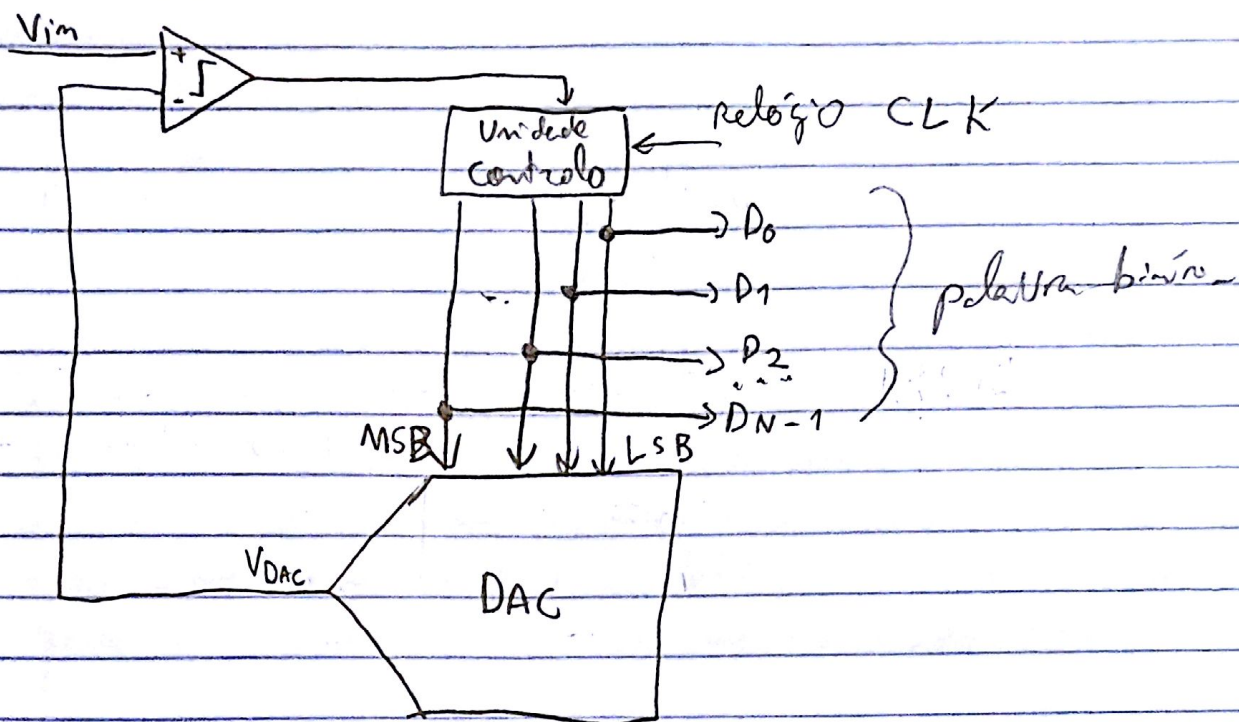 Vin
+
-
Unidade
Controlo
relógio CLK
D0
D1
D2
...
DN-1
palavra binária
MSB
LSB
VDAC
DAC